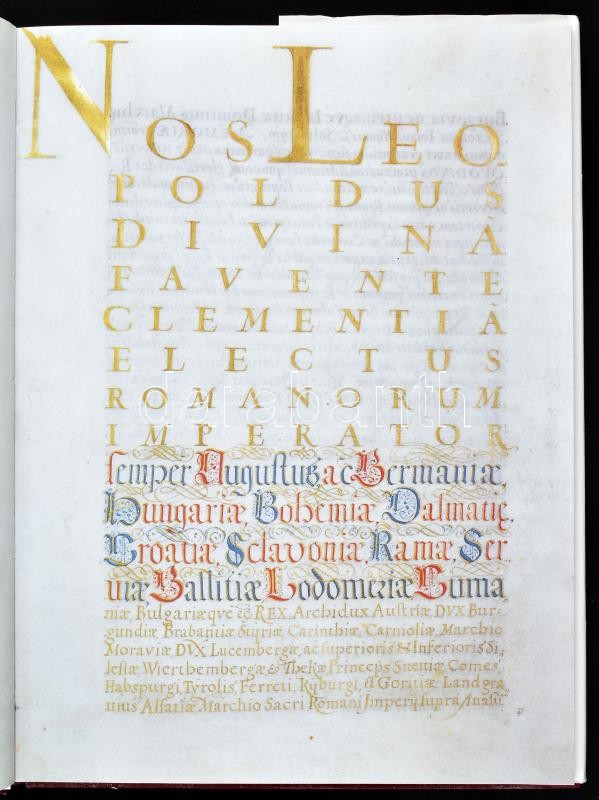 NOS LEO
POLDUS
DIVINA
FAVENTE
CLEMENTIA
ELECTUS
ROMANORUM
IMPERATOR
semper Augustus ac Germaniæ,
Hungariæ Bohemiæ, Dalmatiæ,
Croatiæ, Sclavoniæ, Ramæ, Ser
viæ Gallitiæ Lodomeriæ Cuma
niæ, Bulgariæqve &c REX. Archidux Austriæ, DVX Bur-
gundiæ Brabantiæ Styriæ, Carinthiæ, Carnioliæ, Marchio
Moraviæ DVX Lucembergæ, ac superioris & Inferioris Si-
lesiæ Wierthembergæ, & Thekæ Princeps Sueviæ Comes
Habspurgi, Tyrolis, Ferreti, Kyburgi, & Goritiæ Landgra
uius Alsatiæ Marchio Sacri Romani Imperij supra Anasu
darabanth